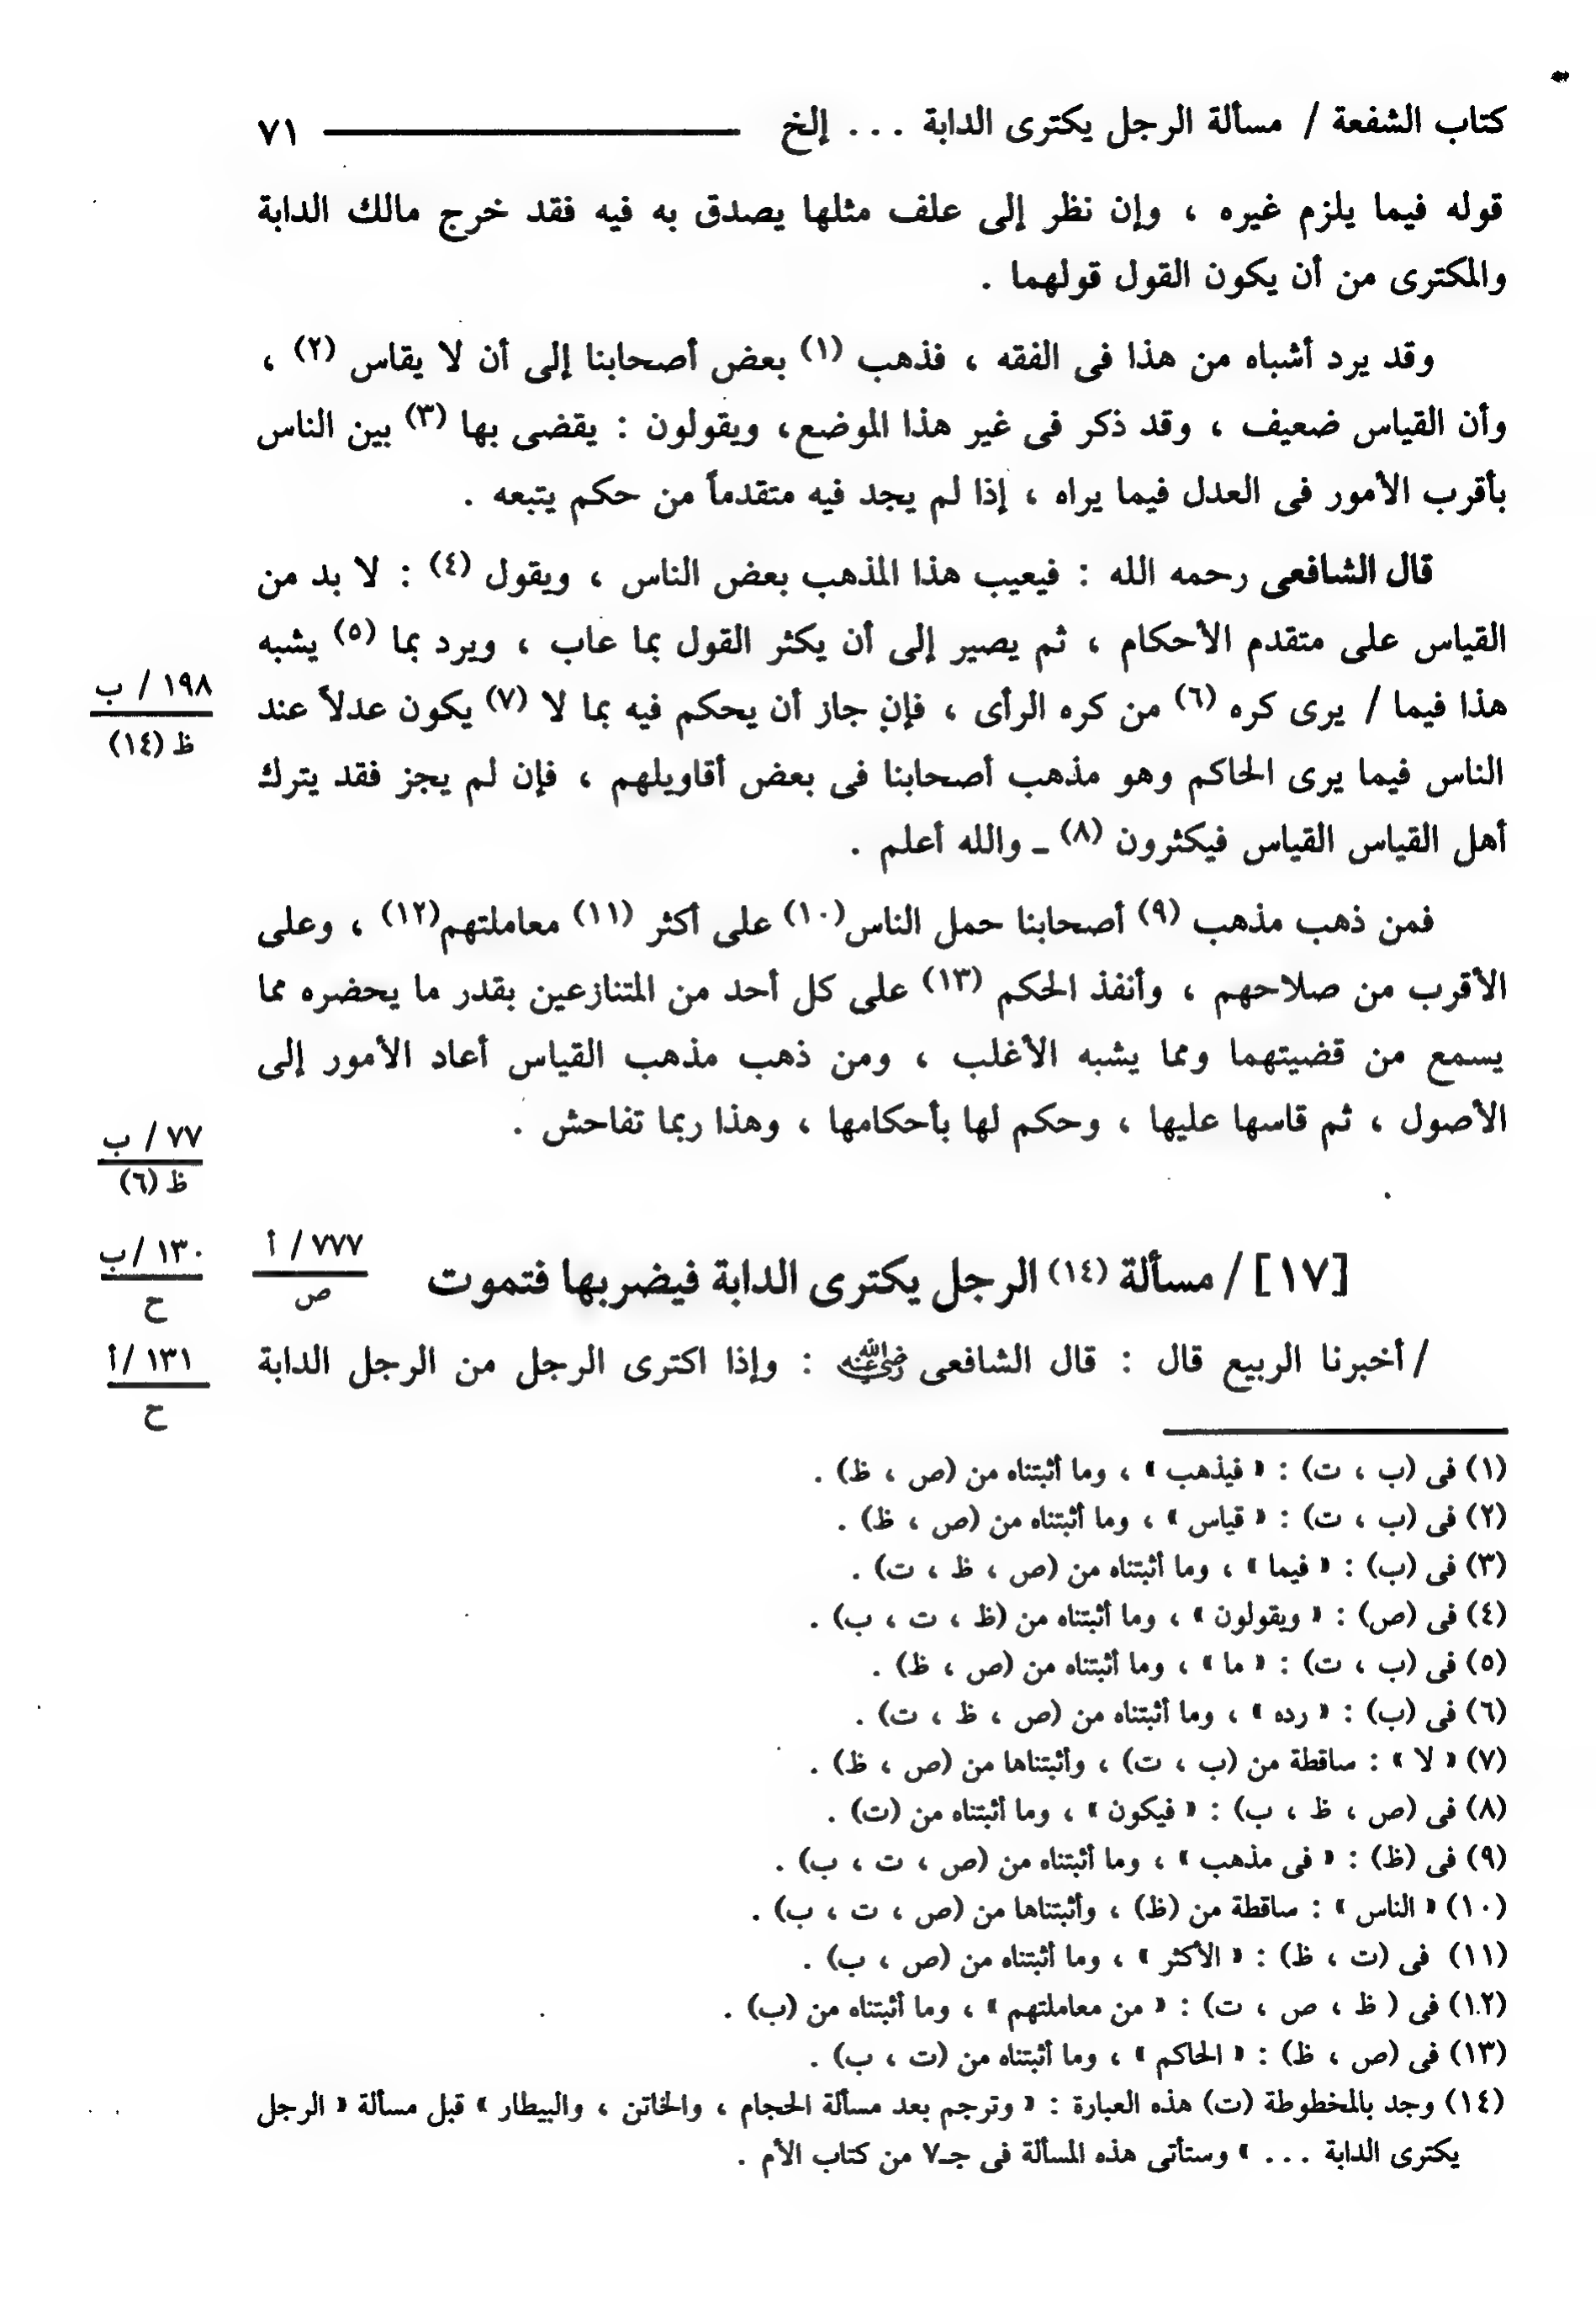 كتاب الشفعة / مسألة الرجل يكترى الدابة . . . إلخ ٧١
قوله فيما يلزم غيره ، وإن نظر إلى علف مثلها يصدق به فيه فقد خرج مالك الدابة
والمكترى من أن يكون القول قولهما .
وقد يرد أشباه من هذا فى الفقه ، فذهب (١) بعض أصحابنا إلى أن لا يقاس (٢) ،
وأن القياس ضعيف ، وقد ذكر فى غير هذا الموضع، ويقولون : يقضى بها (٣) بين الناس
بأقرب الأمور فى العدل فيما يراه ، إذا لم يجد فيه متقدماً من حكم يتبعه .
قال الشافعى رحمه الله : فيعيب هذا المذهب بعض الناس ، ويقول (٤) : لا بد من
القياس على متقدم الأحكام ، ثم يصير إلى أن يكثر القول بما عاب ، ويرد بما (٥) يشبه
هذا فيما / يرى كره (٦) من كره الرأى ، فإن جاز أن يحكم فيه بما لا (٧) يكون عدلاً عند
١٩٨ / ب
ظ (١٤)
الناس فيما يرى الحاكم وهو مذهب أصحابنا فى بعض أقاويلهم ، فإن لم يجز فقد يترك
أهل القياس القياس فيكثرون (٨) ـ والله أعلم .
فمن ذهب مذهب (٩) أصحابنا حمل الناس(١٠) على أكثر (١١) معاملتهم(١٢) ، وعلى
الأقرب من صلاحهم ، وأنفذ الحكم (١٣) على كل أحد من المتنازعين بقدر ما يحضره مما
يسمع من قضيتهما ومما يشبه الأغلب ، ومن ذهب مذهب القياس أعاد الأمور إلى
الأصول ، ثم قاسها عليها ، وحكم لها بأحكامها ، وهذا ربما تفاحش .
٧٧ / ب
ظ (٦)
[١٧] / مسألة (١٤) الرجل يكترى الدابة فيضربها فتموت
٧٧٧ / أ
ص
١٣٠ / ب
ح
/ أخبرنا الربيع قال : قال الشافعى رضي الله عنه : وإذا اكترى الرجل من الرجل الدابة
١٣١ / أ
ح
(١) فى (ب ، ت) : « فيذهب » ، وما أثبتناه من (ص ، ظ) .
(٢) فى (ب ، ت) : « قياس » ، وما أثبتناه من (ص ، ظ) .
(٣) فى (ب) : « فيما » ، وما أثبتناه من (ص ، ظ ، ت) .
(٤) فى (ص) : « ويقولون » ، وما أثبتناه من (ظ ، ت ، ب) .
(٥) فى (ب ، ت) : « ما » ، وما أثبتناه من (ص ، ظ) .
(٦) فى (ب) : « رده » ، وما أثبتناه من (ص ، ظ ، ت) .
(٧) « لا » : ساقطة من (ب ، ت) ، وأثبتناها من (ص ، ظ) .
(٨) فى (ص ، ظ ، ب) : « فيكون » ، وما أثبتناه من (ت) .
(٩) فى (ظ) : « فى مذهب » ، وما أثبتناه من (ص ، ت ، ب) .
(١٠) « الناس » : ساقطة من (ظ) ، وأثبتناها من (ص ، ت ، ب) .
(١١) فى (ت ، ظ) : « الأكثر » ، وما أثبتناه من (ص ، ب) .
(١٢) فى ( ظ ، ص ، ت) : « من معاملتهم » ، وما أثبتناه من (ب) .
(١٣) فى (ص ، ظ) : « الحاكم » ، وما أثبتناه من (ت ، ب) .
(١٤) وجد بالمخطوطة (ت) هذه العبارة : « وترجم بعد مسألة الحجام ، والخاتن ، والبيطار » قبل مسألة « الرجل
يكترى الدابة . . . » وستأتى هذه المسألة فى جـ٧ من كتاب الأم .